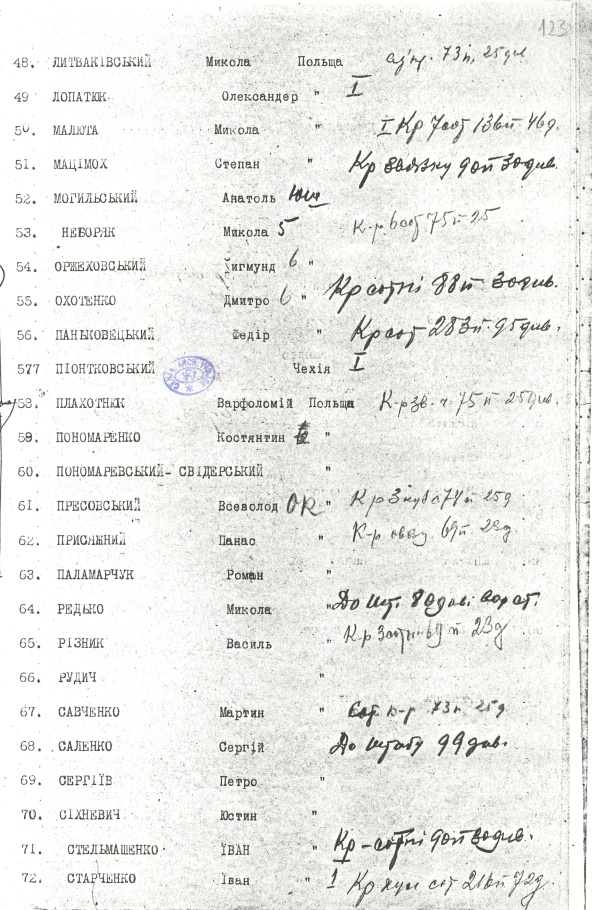 123
48. ЛИТВАКІВСЬКИЙ Микола Польща 73п. 25див
49 ЛОПАТЮК Олександер " I
50. МАЛЮТА Микола " I Кр 7сот 136п 46д.
51. МАЦІМОХ Степан " Кр звязку 9оп 30див.
52. МОГИЛЬСЬКИЙ Анатоль
53. НЕБОРЯК Микола 5 К-р 6сот 75п 25
54. ОРЖЕХОВСЬКИЙ Зигмунд 6 "
55. ОХОТЕНКО Дмитро 6 " Кр сотні 88п 30див.
56. ПАНЬКОВЕЦЬКИЙ Федір " Кр сот 283п. 95див.
577 ПІОНТКОВСЬКИЙ Чехія I
58. ПЛАХОТНЮК Варфоломій Польща К-р зв. ч. 75п 25див.
59. ПОНОМАРЕНКО Костянтин "
60. ПОНОМАРЕВСЬКИЙ- СВІДЕРСЬКИЙ "
61. ПРЕСОВСЬКИЙ Всеволод ОК " К р 74п 25д
62. ПРИСЯЖНИЙ Панас " К-р 69п 23д
63. ПАЛАМАРЧУК Роман "
64. РЕДЬКО Микола " До шт. 80див.
65. РІЗНИК Василь " К-р 3сотні 69п 23д
66. РУДИЧ "
67. САВЧЕНКО Мартин " сот к-р 73п. 25д
68. САЛЕНКО Сергій " До штабу 99див.
69. СЕРГІЇВ Петро "
70. СІХНЕВИЧ Юстин "
71. СТЕЛЬМАШЕНКО ЇВАН " Кр-сотні 9оп 30див.
72. СТАРЧЕНКО Іван " 1 Кр кул сот 216п 72д.